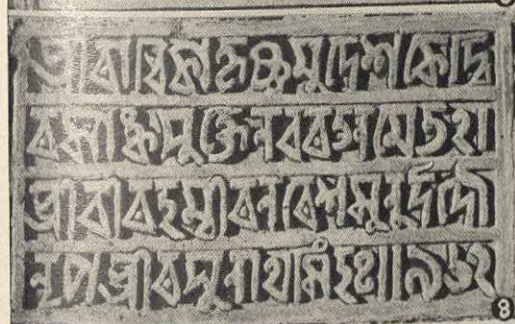 শ্রীরাধিকাকৃষ্ণমুদে শকে দ্বি
রসাঙ্কযুক্তে নবরত্নমেতৎ।
শ্রীবীরহম্বীরনরেশসূনুর্দদৌ
নৃপশ্রীরঘুনাথসিংহঃ॥ ৯৬২
৪